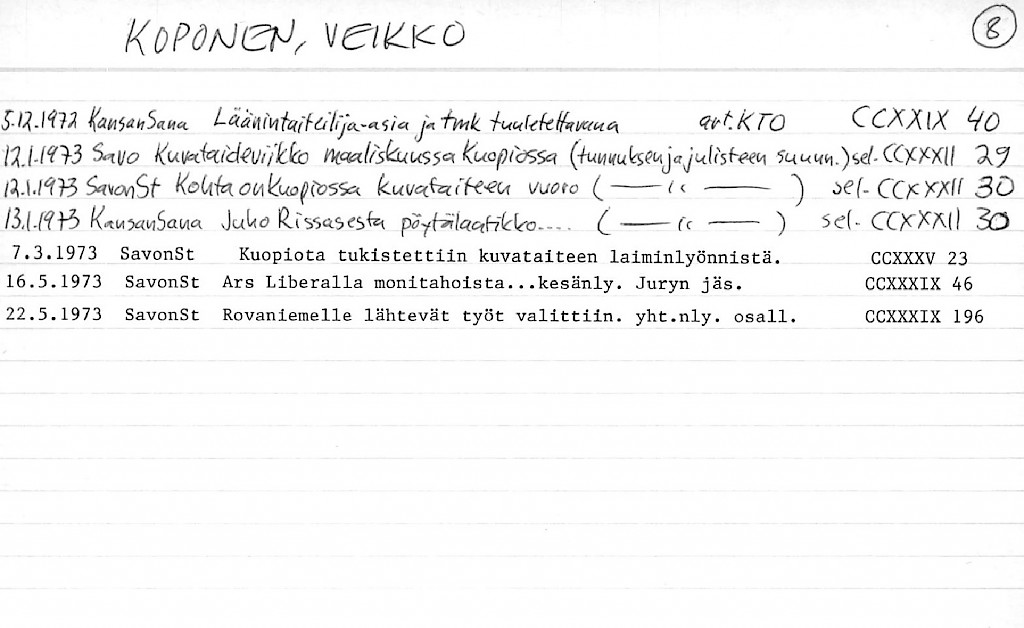 KOPONEN, VEIKKO 8
5.12.1972 KansanSana Läänintaiteilija-asia ja tmk tuuletettavana art.KTO CCXXIX 40
12.1.1973 Savo Kuvataideviikko maaliskuussa Kuopiossa (tunnuksen ja julisteen suunn.) sel. CCXXXII 29
12.1.1973 SavonSt Kohta on Kuopiossa kuvataiteen vuoro ( —— " —— ) sel- CCXXXII 30
13.1.1973 KansanSana Juho Rissasesta pöytälaatikko.... ( —— " —— ) sel- CCXXXII 30
7.3.1973 SavonSt Kuopiota tukistettiin kuvataiteen laiminlyönnistä. CCXXXV 23
16.5.1973 SavonSt Ars Liberalla monitahoista...kesänly. Juryn jäs. CCXXXIX 46
22.5.1973 SavonSt Rovaniemelle lähtevät työt valittiin. yht.nly. osall. CCXXXIX 196